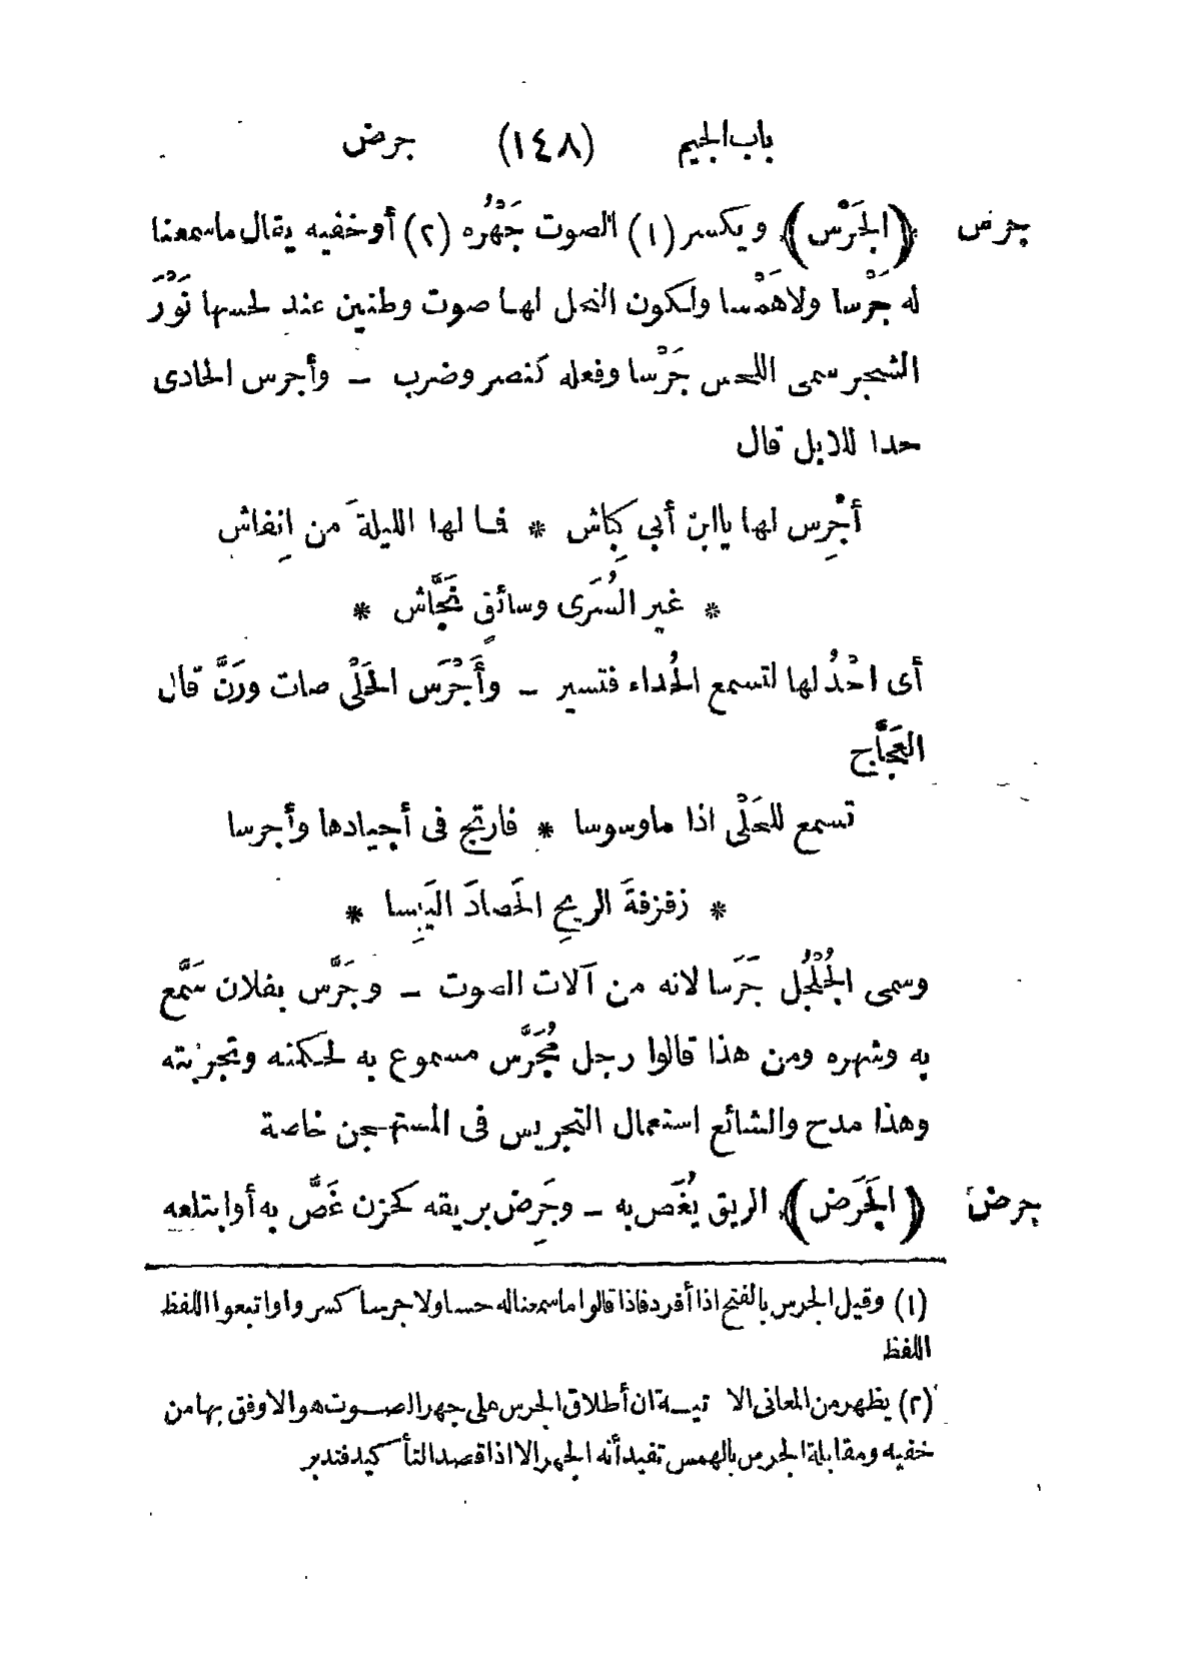 باب الجيم (١٤٨) جرض
جرس ﴿الجَرْس﴾ ويكسر (١) الصوت جَهْرُه (٢) أو خفيه يقال ما سمعنا
له جَرْسا ولا هَمْسا ولكون النحل لها صوت وطنين عند لحسها نَوْرَ
الشجر سمى اللحس جَرْسا وفعله كنصر وضرب — وأجرس الحادى
حدا للابل قال
أجْرِس لها يا ابن أبي كِباش * فما لها الليلةَ من اِنفاش
* غير السُرَى وسائقٍ نَجَّاش *
أى احْدُ لها لتسمع الحُداء فتسير — وأَجْرَس الحَلْى صات ورَنَّ قال
العَجَّاج
تسمع للحَلْى اذا ما وسوسا * فارتج فى أجيادها وأجرسا
* زفزفةَ الريحِ الحَصادَ اليَبِسا *
وسمى الجُلْجُل جَرَسا لانه من آلات الصوت — وجَرَّس بفلان سَمَّع
به وشهره ومن هذا قالوا رجل مُجَرَّس مسموع به لحكمته وتجربته
وهذا مدح والشائع استعمال التجريس فى المستهجن خاصة
جرض ﴿الجَرَض﴾ الريق يُغَص به — وجَرِض بريقه كحزن غَصَّ به أو ابتلعه
(١) وقيل الجرس بالفتح اذا أفرد فاذا قالوا ما سمعنا له حسا ولا جرسا كسروا واتبعوا اللفظ
اللفظ
(٢) يظهر من المعانى الا تيــة ان أطلاق الجرس على جهر الصــوت هو الاوفق بها من
خفيه ومقابلة الجرس بالهمس تفيد أنه الجهر الا اذا قصد التأكيد فتدبر